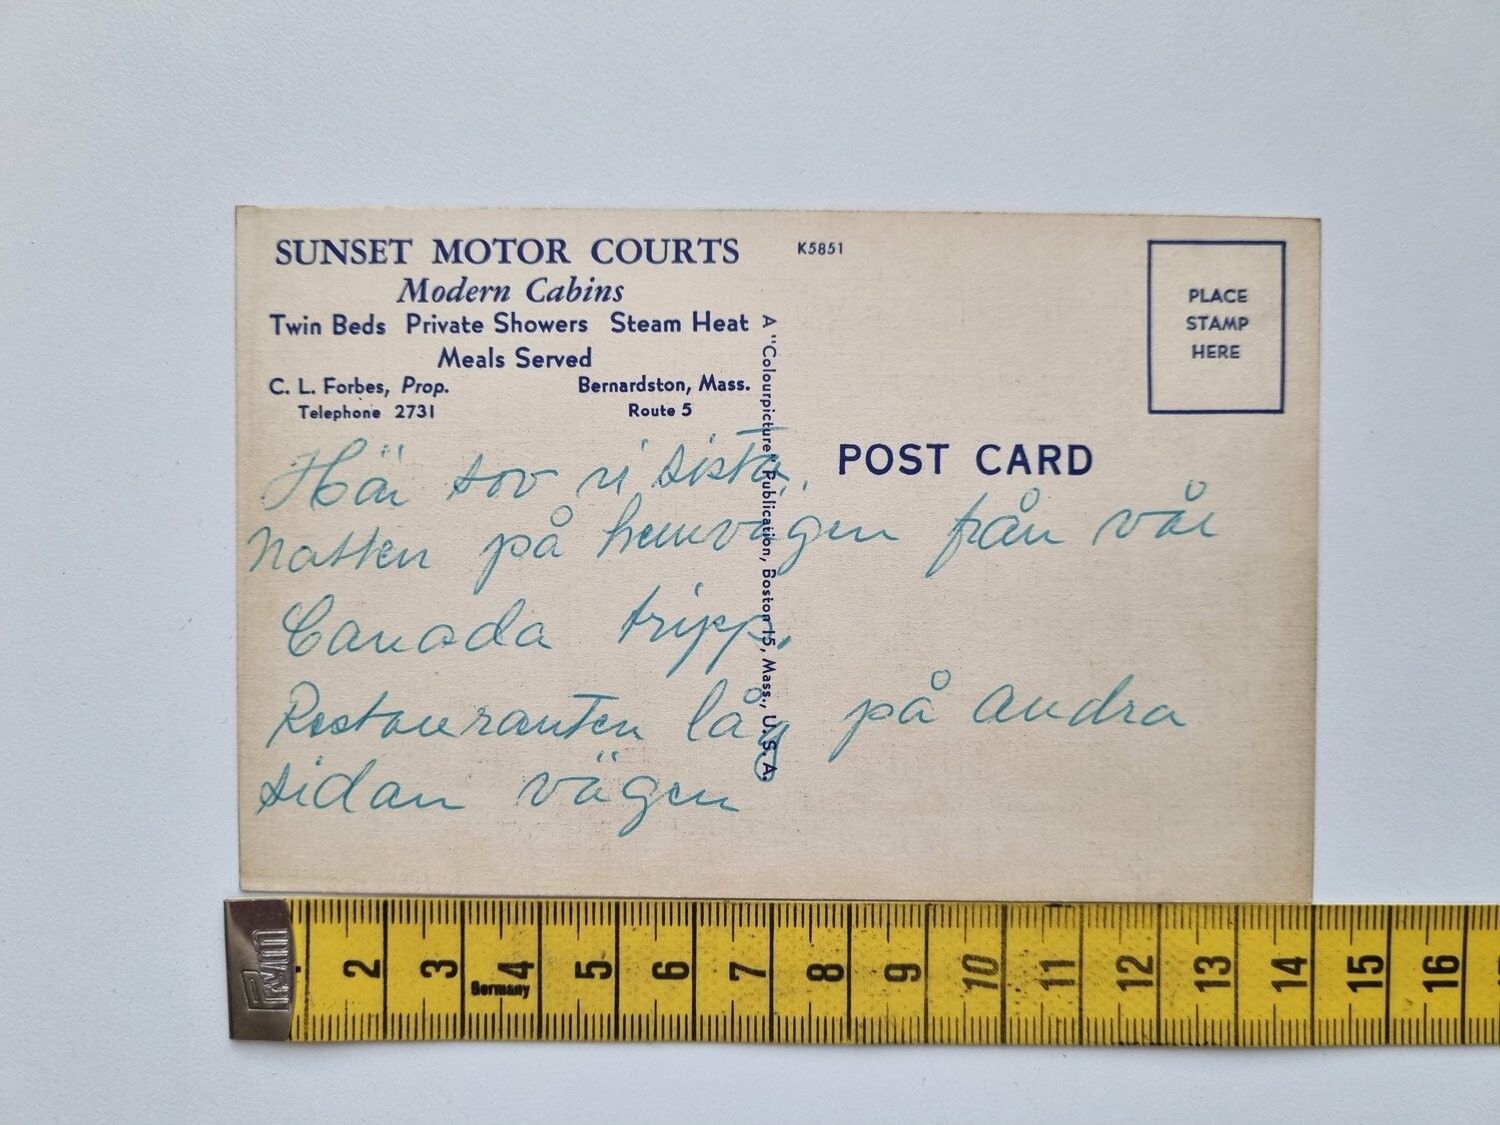 SUNSET MOTOR COURTS
Modern Cabins
Twin Beds Private Showers Steam Heat
Meals Served
C. L. Forbes, Prop. Bernardston, Mass.
Telephone 2731 Route 5
K5851
PLACE
STAMP
HERE
A "Colourpicture" Publication, Boston 15, Mass., U.S.A.
POST CARD
Här sov vi sista
Natten på hemvägen från vår
Canada tripp.
Restauranten låg på andra
sidan vägen
Prym
2 3 4 5 6 7 8 9 10 11 12 13 14 15 16
Germany